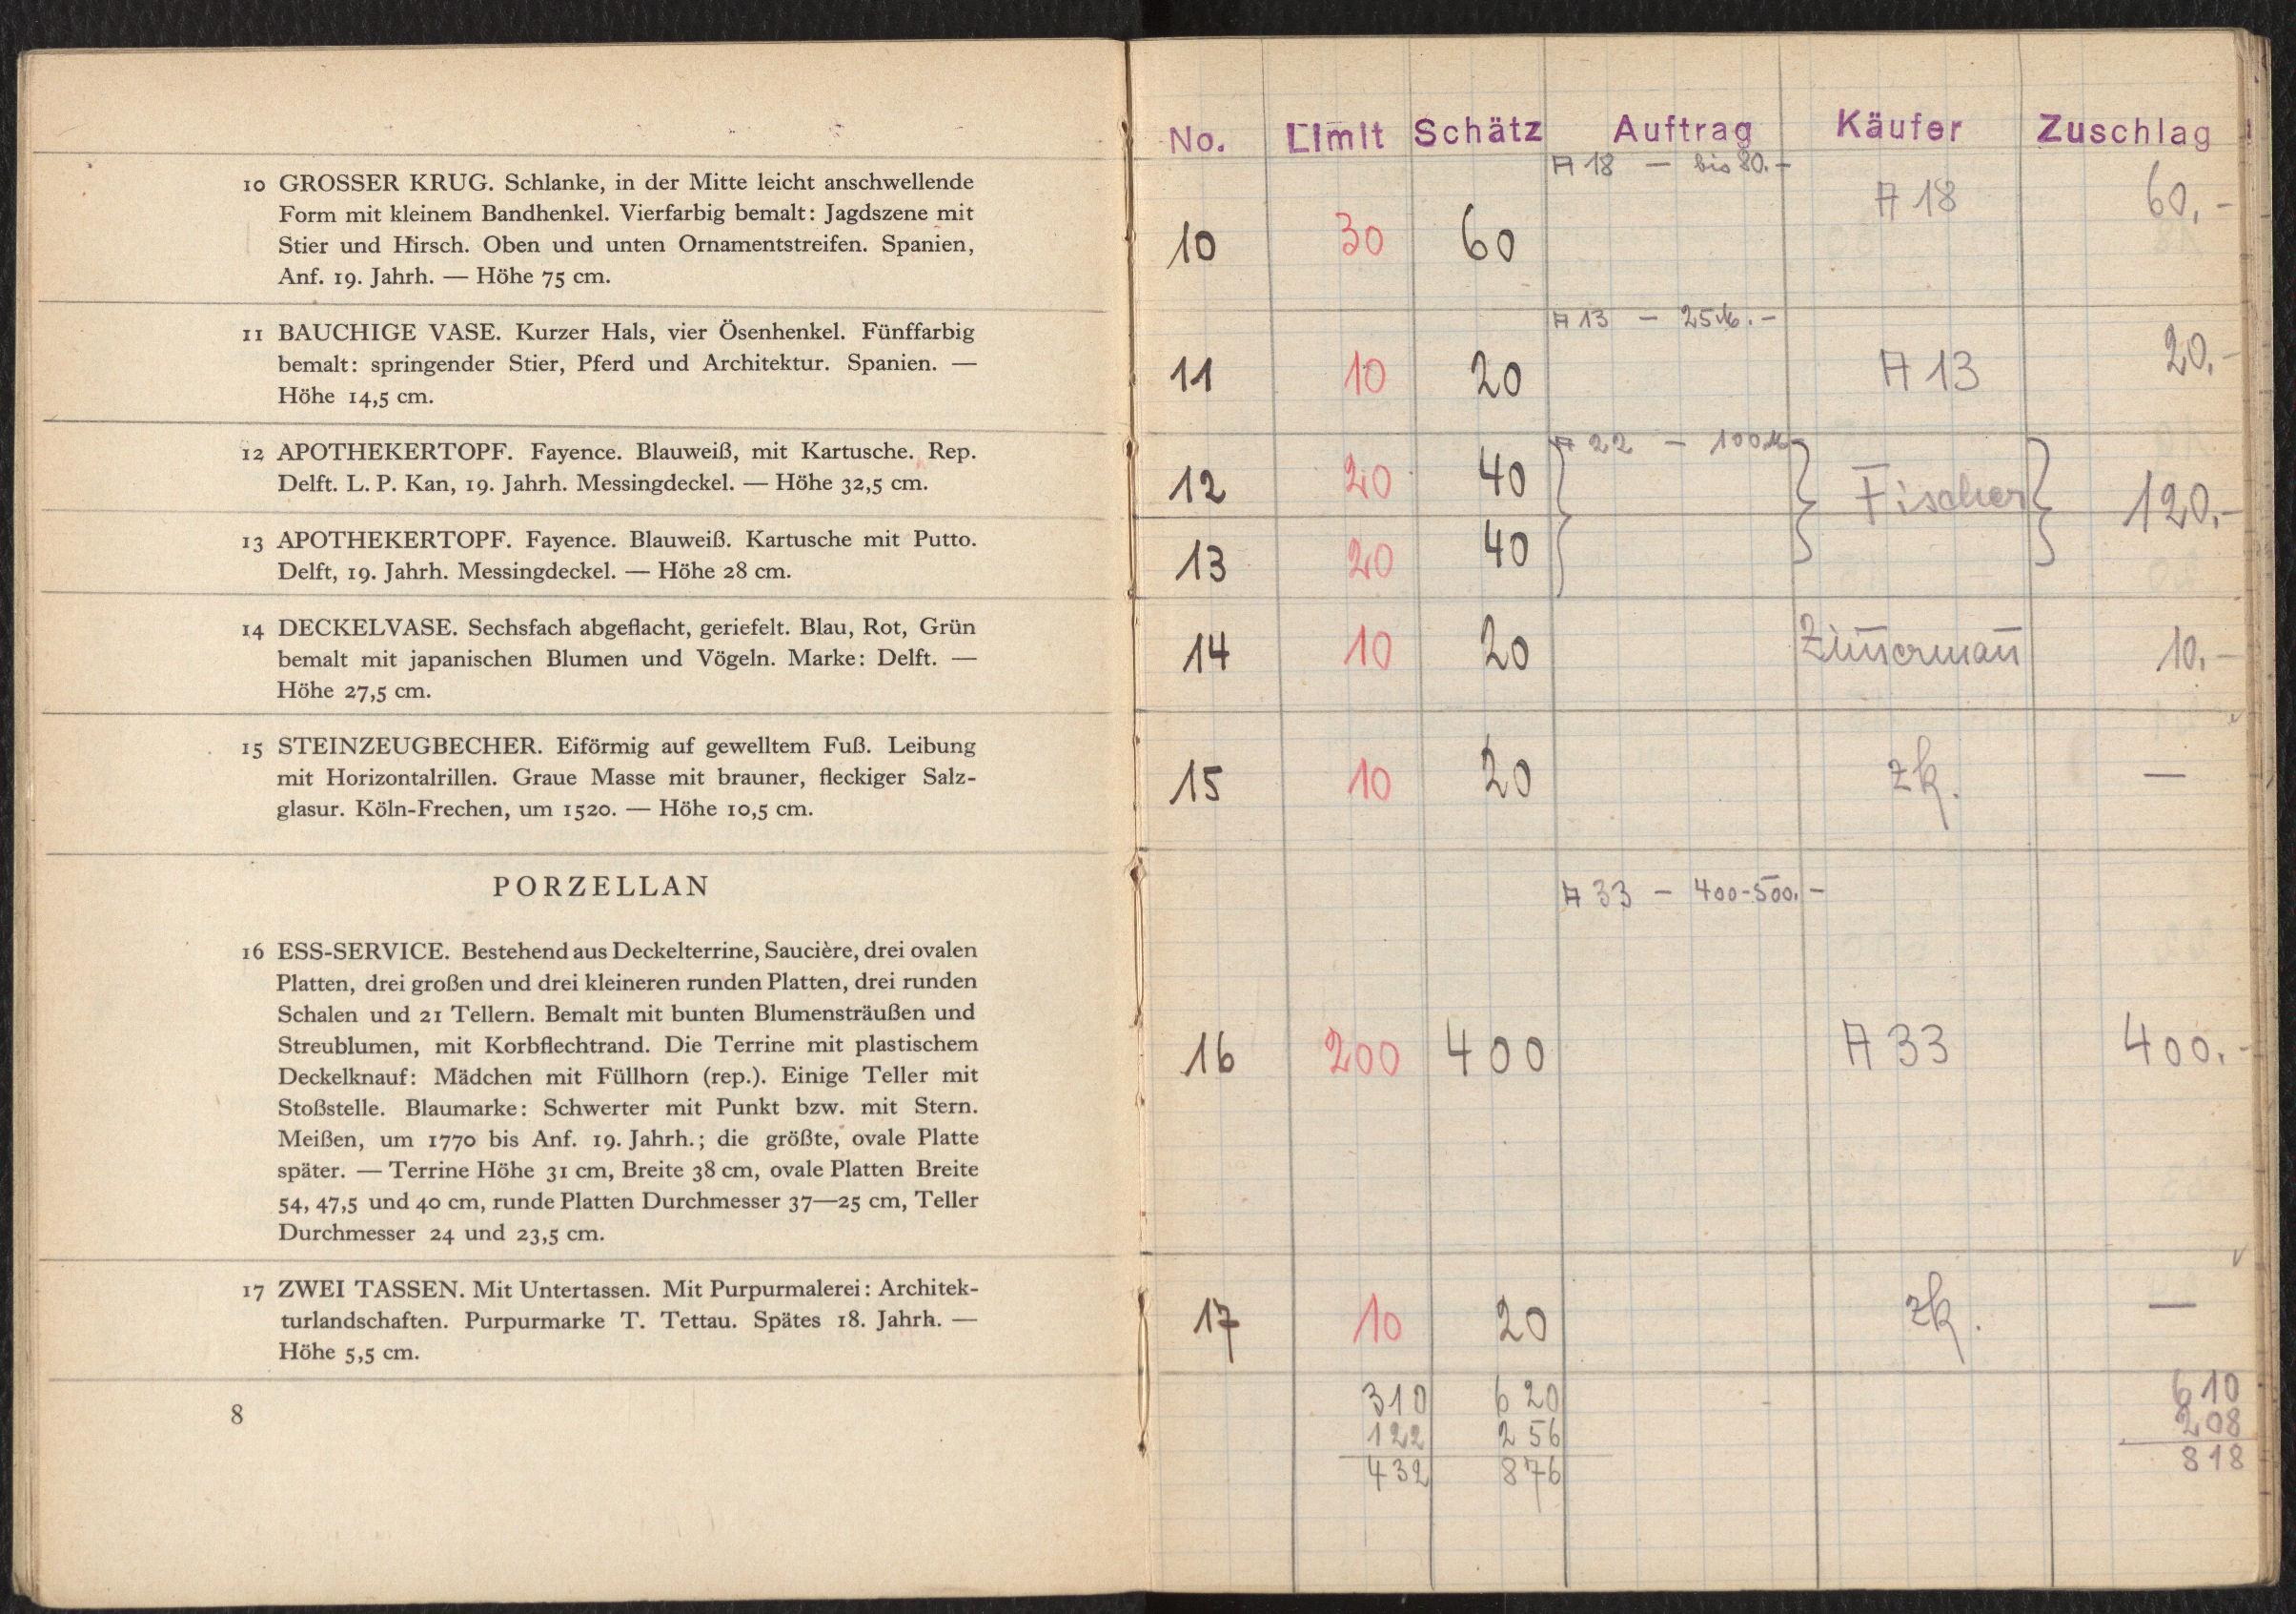 10 GROSSER KRUG. Schlanke, in der Mitte leicht anschwellende
Form mit kleinem Bandhenkel. Vierfarbig bemalt: Jagdszene mit
Stier und Hirsch. Oben und unten Ornamentstreifen. Spanien,
Anf. 19. Jahrh. — Höhe 75 cm.
11 BAUCHIGE VASE. Kurzer Hals, vier Ösenhenkel. Fünffarbig
bemalt: springender Stier, Pferd und Architektur. Spanien. —
Höhe 14,5 cm.
12 APOTHEKERTOPF. Fayence. Blauweiß, mit Kartusche. Rep.
Delft. L. P. Kan, 19. Jahrh. Messingdeckel. — Höhe 32,5 cm.
13 APOTHEKERTOPF. Fayence. Blauweiß. Kartusche mit Putto.
Delft, 19. Jahrh. Messingdeckel. — Höhe 28 cm.
14 DECKELVASE. Sechsfach abgeflacht, geriefelt. Blau, Rot, Grün
bemalt mit japanischen Blumen und Vögeln. Marke: Delft. —
Höhe 27,5 cm.
15 STEINZEUGBECHER. Eiförmig auf gewelltem Fuß. Leibung
mit Horizontalrillen. Graue Masse mit brauner, fleckiger Salz-
glasur. Köln-Frechen, um 1520. — Höhe 10,5 cm.
PORZELLAN
16 ESS-SERVICE. Bestehend aus Deckelterrine, Saucière, drei ovalen
Platten, drei großen und drei kleineren runden Platten, drei runden
Schalen und 21 Tellern. Bemalt mit bunten Blumensträußen und
Streublumen, mit Korbflechtrand. Die Terrine mit plastischem
Deckelknauf: Mädchen mit Füllhorn (rep.). Einige Teller mit
Stoßstelle. Blaumarke: Schwerter mit Punkt bzw. mit Stern.
Meißen, um 1770 bis Anf. 19. Jahrh.; die größte, ovale Platte
später. — Terrine Höhe 31 cm, Breite 38 cm, ovale Platten Breite
54, 47,5 und 40 cm, runde Platten Durchmesser 37—25 cm, Teller
Durchmesser 24 und 23,5 cm.
17 ZWEI TASSEN. Mit Untertassen. Mit Purpurmalerei: Architek-
turlandschaften. Purpurmarke T. Tettau. Spätes 18. Jahrh. —
Höhe 5,5 cm.
8
No. Limit Schätz Auftrag Käufer Zuschlag
A 18 — bis 80.-
10 30 60 A 18 60,-
A 13 — 25 M.-
11 10 20 A 13 20.-
A 22 — 100 M
12 20 40 Fischer 120,-
13 20 40
14 10 20 Zim̅erman̅ 10,-
15 10 20 zk. —
A 33 — 400-500.-
16 200 400 A 33 400.-
17 10 20 zk. —
310 620 610
122 256 208
432 876 818